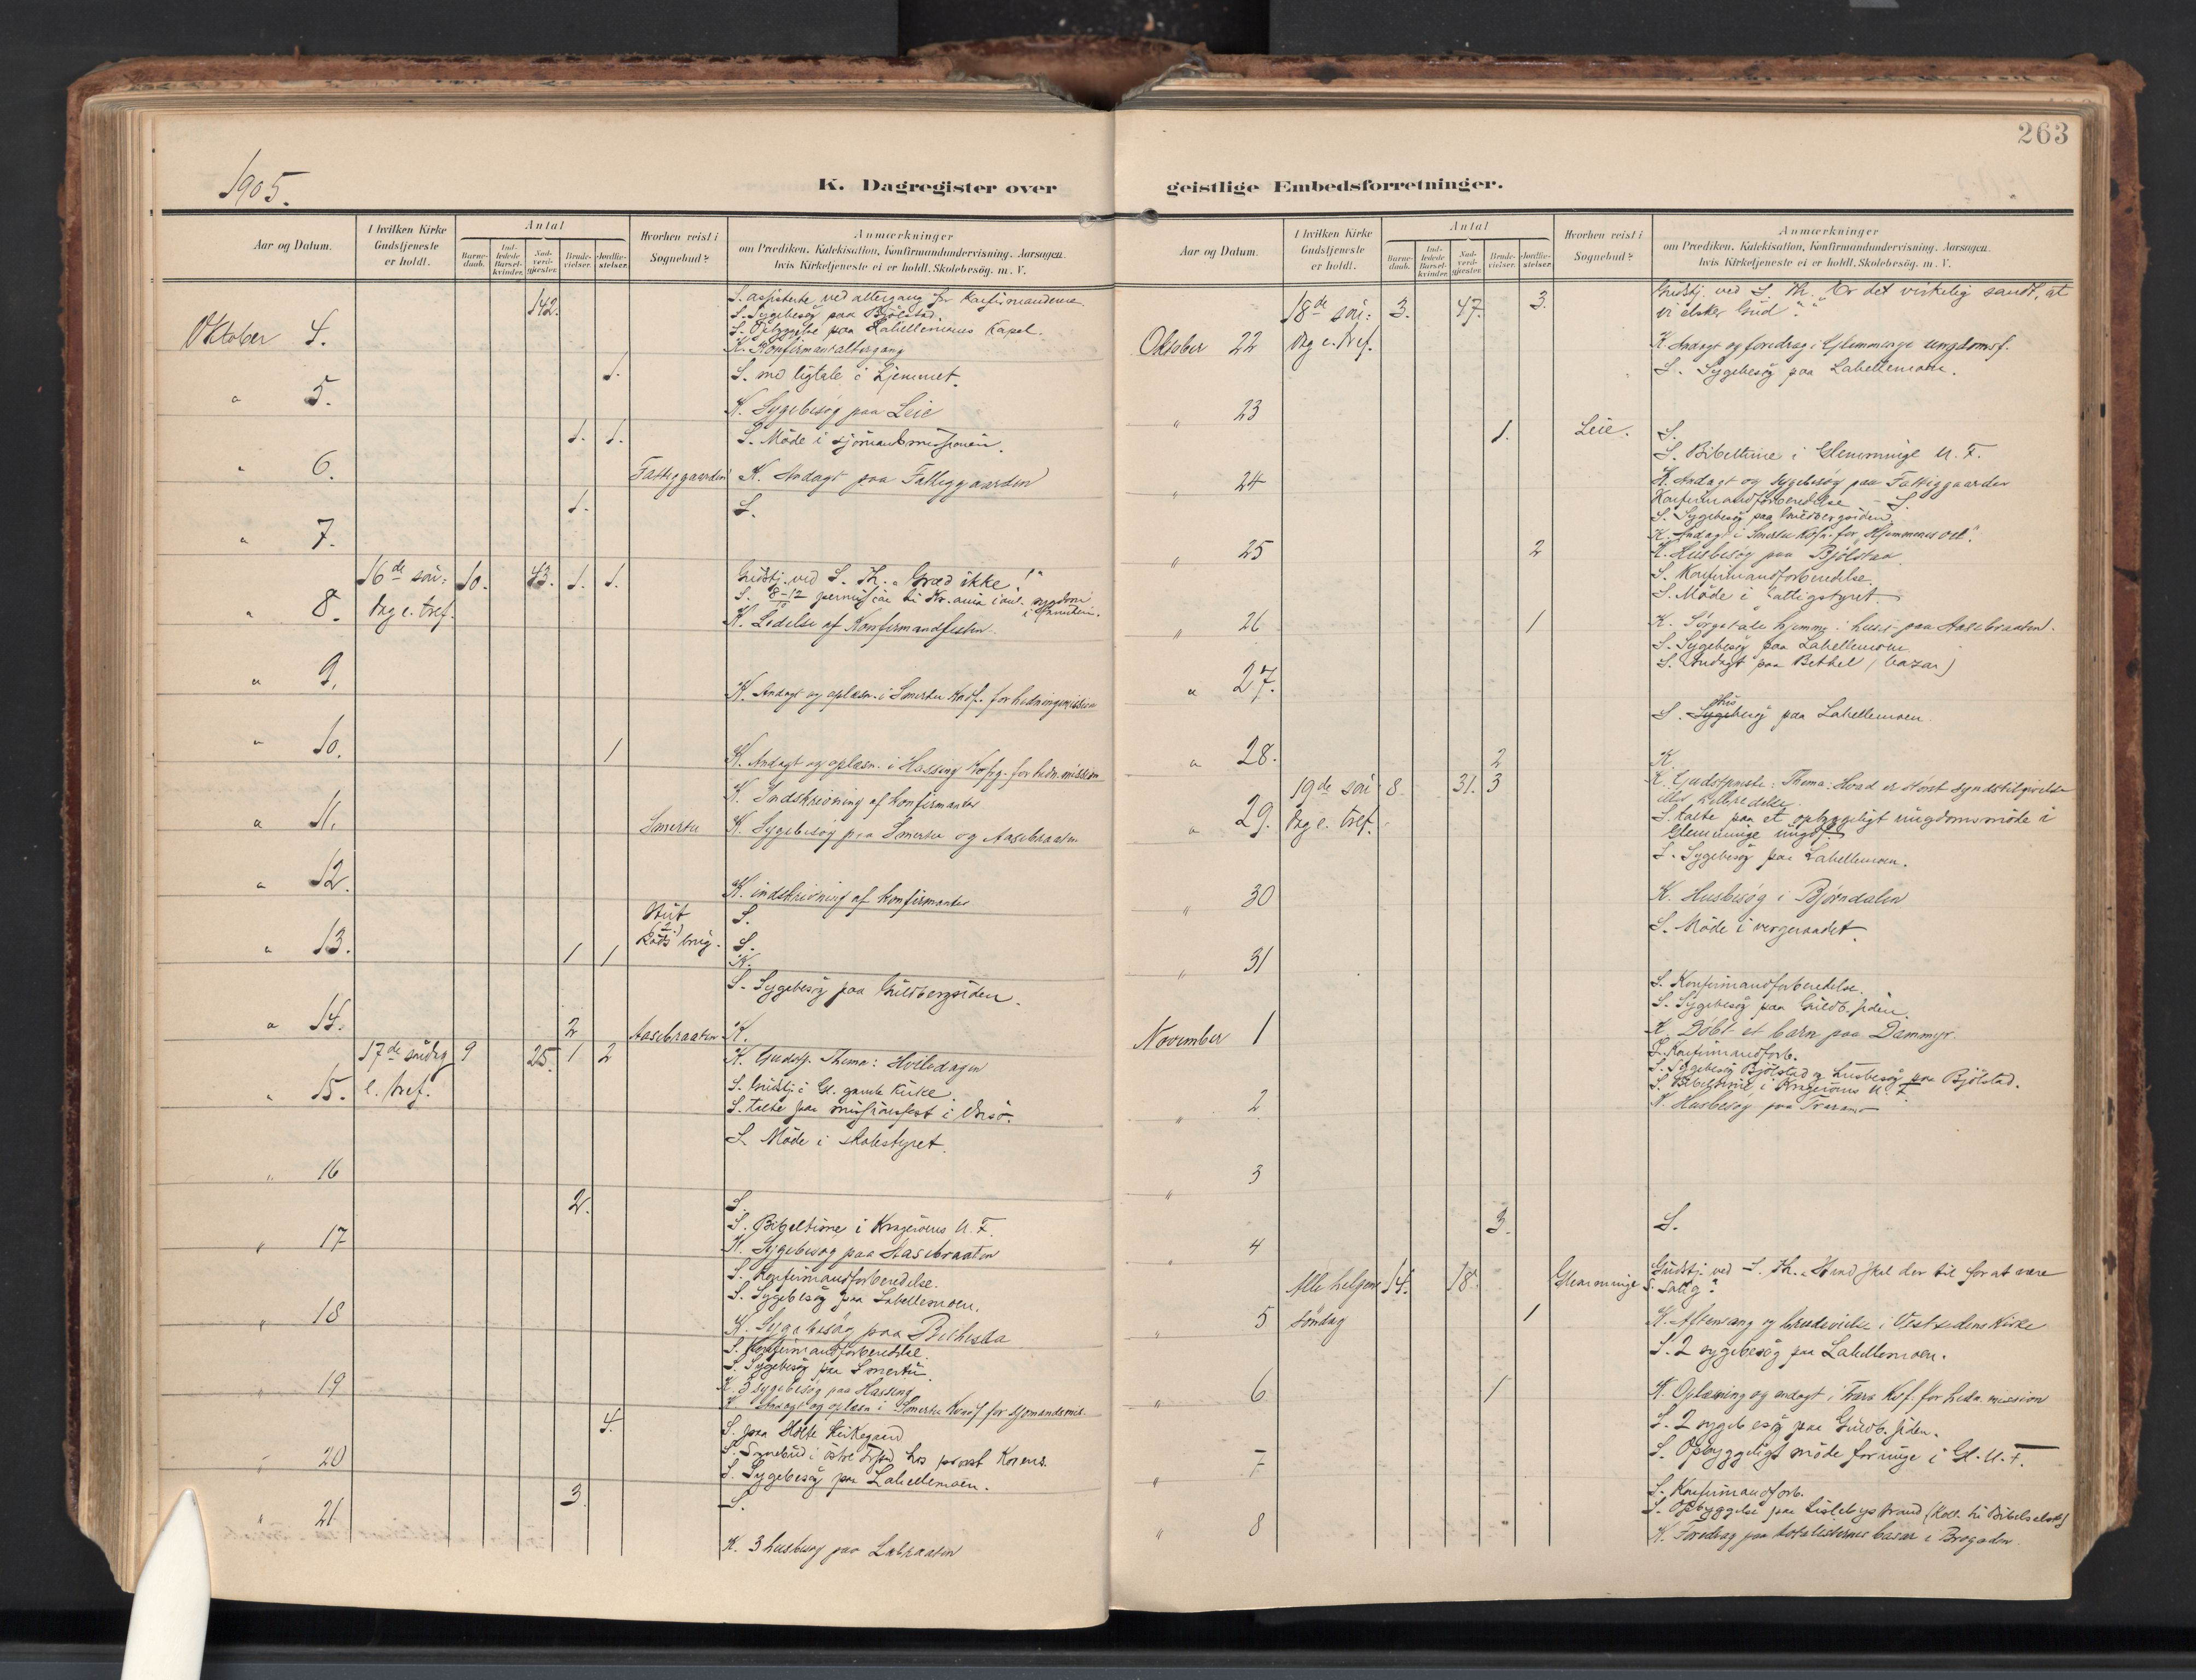 263
1905.
K. Dagregister over geistlige Embedsforretninger.
Aar og Datum.
I hvilken Kirke Gudstjeneste er holdt.
Antal
Barnedaab.
Indledede Barselkvinder.
Nadverdgjester.
Brudevielser.
Jordfæstelser.
Hvorhen reist i Sognebud?
Anmærkninger
om Prædiken, Katekisation, Konfirmandundervisning. Aarsagen, hvis Kirketjeneste ei er holdt. Skolebesög. m. V.
Oktober 4.
142.
S. assisterte ved altergang for Konfirmanderne.
S. Sygebesøg paa Bjølstad.
S. Opbyggelse paa Labellemoens Kapel.
K. Konfirmantaltergang
" 5.
1.
S. med ligtale i hjemmet.
K. Sygebesøg paa Leie
" 6.
1. 1.
S. Møde i sjømandsmissionen.
Fattiggaarden
K. Andagt paa Fattiggaarden
" 7.
1.
S.
" 8.
16de søn: dag e. tref.
10. 43. 1. 1.
Gudstj. ved S. Th. "Græd ikke!"
S. 8-12/10 permission til Kr.ania i anl. sygdom i familien.
K. Ledelse af Konfirmandfesten
" 9.
K. Andagt og oplæsn. i Smertu Kvdf. for hedningemission
" 10.
1
K. Andagt og oplæsn. i Hassing Kvfg. for hedn.mission
K. Indskrivning af konfirmanter
" 11.
Smertu
K. Sygebesøg paa Smertu og Aasebraaten
" 12.
K. indskrivning af konfirmanter
" 13.
1 1
S.
S.
K.
S. Sygebesøg paa Guldbergsiden.
" 14.
2
Aasebraaten
K.
" 15.
17de søndag e. tref.
9 25. 1 2
K. Gudstj. Thema: Hviledagen
S. Gudstj. i Gl. gamle Kirke.
S. talte paa missionsfest i Onsø.
S. Møde i skolestyret.
" 16
" 17
2.
S.
S. Bibeltime i Kragerøens U. F.
K. Sygebesøg paa Aasebraaten
" 18
S. Konfirmandforberedelse.
S. Sygebesøg paa Labellemoen.
K. Sygebesøg paa Bethesda
" 19
S. Konfirmandforberedelse.
S. Sygebesøg paa Smertu.
K. 3 sygebesøg paa Hassing
K. Andagt og oplæsn. i Smertu Kvdf for sjømandsmis.
" 20
4.
S. paa Holte Kirkegaard
S. Sognebud i østre Fr.stad hos provst Korens.
S. Sygebesøg paa Labellemoen.
" 21
3.
S.
K. 3 husbesøg paa Labraaten
Aar og Datum.
I hvilken Kirke Gudstjeneste er holdt.
Antal
Barnedaab.
Indledede Barselkvinder.
Nadverdgjester.
Brudevielser.
Jordfæstelser.
Hvorhen reist i Sognebud?
Anmærkninger
om Prædiken, Katekisation, Konfirmandundervisning. Aarsagen, hvis Kirketjeneste ei er holdt. Skolebesög. m. V.
Oktober 22
18de søn: dag e. tref.
3. 47. 3.
Gudstj. ved S. Th. "Er det virkelig sandt, at vi elsker Gud".
K. Andagt og foredrag i Glemminge ungdomsf.
S. Sygebesøg paa Labellemoen.
" 23
1.
Leie.
S.
S. Bibeltime i Glemminge U. F.
" 24
K. Andagt og sygebesøg paa Fattiggaarden
Konfirmandforberedelse - S.
S. Sygebesøg paa Guldbergsiden.
K. Andagt i Smertu Kvfn. for "Hjemmenes vel".
" 25
2
K. Husbesøg paa Bjølstad
S. Konfirmandforberedelse.
S. Møde i fattigstyret.
" 26
1
K. Sørgetale hjemme i huset paa Aasebraaten.
S. Sygebesøg paa Labellemoen.
S. Andagt paa Bethel (bazar)
" 27.
S. Husbesøg paa Labellemoen.
" 28.
2
K.
" 29.
19de søndag e. tref.
8 31. 3
K. Gudstjeneste: Thema: Hvad er størst syndstilgivelse eller helbredelse.
S. talte paa et opbyggeligt ungdomsmøde i Glemminge ungdf.
S. Sygebesøg paa Labellemoen.
" 30
K. Husbesøg i Bjørndalen
S. Møde i vergeraadet.
" 31
S. Konfirmandforberedelse.
S. Sygebesøg paa Guldb.siden.
November 1
K. Døbt et barn paa Dammyr.
S. Konfirmandforb.
S. Sygebesøg Bjølstad og husbesøg paa Bjølstad.
S. Bibeltime i Kragerøens U. F.
" 2
K. Husbesøg paa Traramo
" 3
" 4
3.
S.
" 5
Alle helgens søndag
14. 18. 1
Glemminge
Gudstj. ved S. Th. "Hvad skal der til for at være salig".
K. Aftensang og brudevielse i Vestsidens Kirke
S. 2 sygebesøg paa Labellemoen.
" 6
1
K. Oplæsning og andagt i Trara Kvf. for hedn. mission
S. 2 sygebesøg paa Guldb. siden.
S. Opbyggeligt møde for unge i Gl. U. F.
" 7
" 8
S. Konfirmandforb.
S. Opbyggelse paa Lislebystrand (Koll. til Bibelselsk)
K. Foredrag paa totalisternes basar i Brogaden.